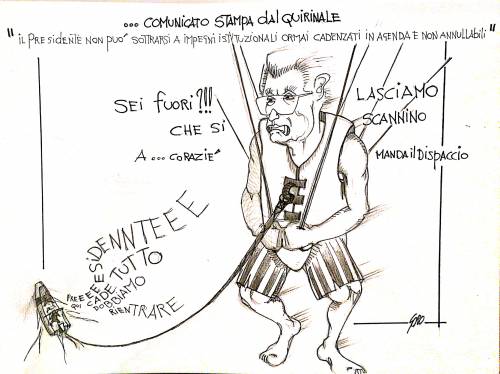 ... COMUNICATO STAMPA dal QUIRINALE
" iL PRESidENTE NON PUO' SOTTRARSI A IMPEGNI ISTITUZIONALI ORMAI CADENZATI IN AGENDA E NON ANNULLABILI "
SEI FUORI?!!!
CHE SI
A ... CORAZIE'
LASCIAMO
SCANNINO
MANDA il DISPACCIO
PREEEEESIDENNTEEE
QUI CADE TUTTO
DOBBIAMO
RIENTRARE